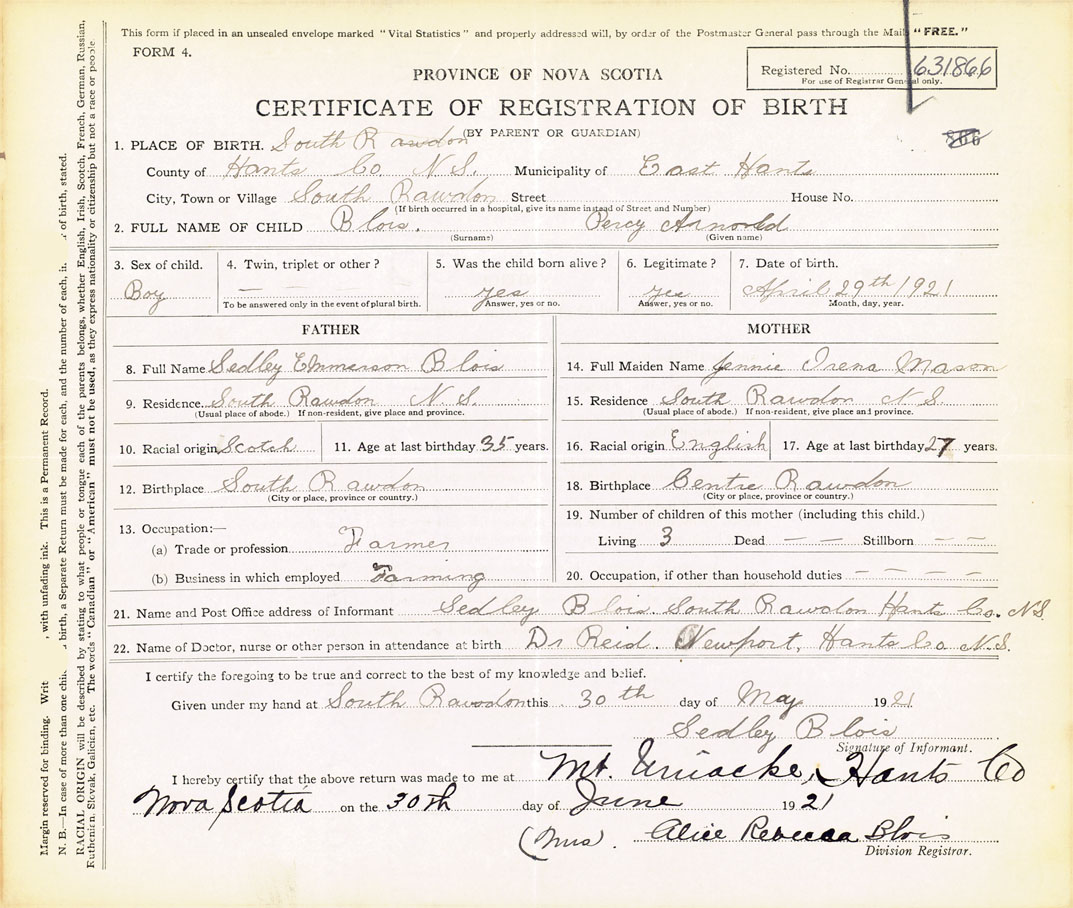 This form if placed in an unsealed envelope marked "Vital Statistics" and properly addressed will, by order of the Postmaster General pass through the Mail "FREE."
FORM 4.
Registered No. 631866
For use of Registrar General only.
PROVINCE OF NOVA SCOTIA
CERTIFICATE OF REGISTRATION OF BIRTH
(BY PARENT OR GUARDIAN)
866
1. PLACE OF BIRTH. South Rawdon
County of Hants Co N S. Municipality of East Hants
City, Town or Village South Rawdon Street House No.
(If birth occurred in a hospital, give its name instead of Street and Number)
2. FULL NAME OF CHILD Blois. Percy Arnorld
(Surname) (Given name)
3. Sex of child. 4. Twin, triplet or other? 5. Was the child born alive? 6. Legitimate? 7. Date of birth.
Boy — — yes yes April 29th 1921
To be answered only in the event of plural birth. Answer, yes or no. Answer, yes or no. Month, day, year.
FATHER
8. Full Name Sedley Emmerson Blois
9. Residence South Rawdon N S.
(Usual place of abode.) If non-resident, give place and province.
10. Racial origin Scotch 11. Age at last birthday 35 years.
12. Birthplace South Rawdon
(City or place, province or country.)
13. Occupation:—
(a) Trade or profession Farmer
(b) Business in which employed Farming
MOTHER
14. Full Maiden Name Jennie Irena Mason
15. Residence South Rawdon N S.
(Usual place of abode.) If non-resident, give place and province.
16. Racial origin English 17. Age at last birthday 27 years.
18. Birthplace Centre Rawdon
(City or place, province or country.)
19. Number of children of this mother (including this child.)
Living 3 Dead — — Stillborn — —
20. Occupation, if other than household duties — — — —
21. Name and Post Office address of Informant Sedley Blois. South Rawdon Hants Co. N S.
22. Name of Doctor, nurse or other person in attendance at birth Dr Reid. Newport, Hants Co N.S.
I certify the foregoing to be true and correct to the best of my knowledge and belief.
Given under my hand at South Rawdon this 30th day of May 1921
Sedley Blois
Signature of Informant.
I hereby certify that the above return was made to me at Mt. Uniacke, Hants Co
Nova Scotia on the 30th day of June 1921
(Mrs). Alice Rebecca Blois
Division Registrar.
Margin reserved for binding. Writ , with unfading ink. This is a Permanent Record.
N. B.—In case of more than one chi birth, a Separate Return must be made for each, and the number of each, i of birth, stated.
RACIAL ORIGIN will be described by stating to what people or tongue each of the parents belongs, whether English, Irish, Scotch, French, German, Russian,
Ruthenian, Slovak, Galician, etc. The words "Canadian" or "American" must not be used, as they express nationality or citizenship but not a race or people